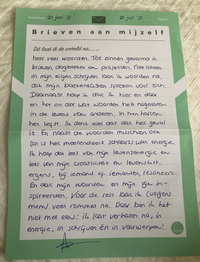 20 juni '21 20 juni '21
Brieven aan mijzelf
Dit laat ik de wereld na......
heel veel woorden. Tot zinnen gevormd in
brieven, dagboeken en projecten. Niet alleen
in mijn eigen schrijven laat ik woorden na,
ook mijn boekenkasten spreken voor zich.
Daarnaast hoop ik dat ik hier en daar
en her en der wat woorden heb nagelaten
in de levens van anderen. In hun harten
het liefst. Ik denk wel dat dat het geval
is. En naast de woorden misschien ook
(al is het merendeels schaars) wat energie.
Ik hoop dat iets van mijn levensenergie en
iets van mijn creativiteit en levenslust,
ergens, bij iemand of iemanden, resoneert.
En dat mijn woorden en mijn zijn in-
spireerden. Voor de rest laat ik (volgens
mij) veel rommel na. Daar ben ik het
niet mee eens: ik laat verhalen na, in
energie, in schrijven én in voorwerpen!